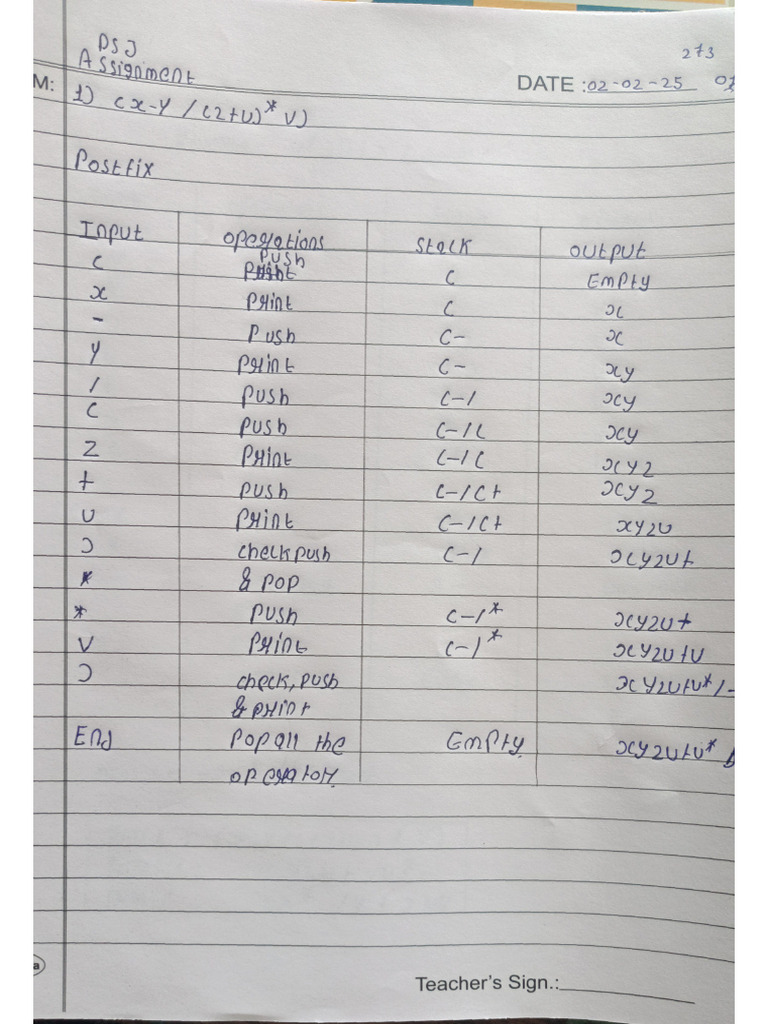 DSJ
Assignment
273
M:
DATE :02-02-25
1) (x-y / (z+u)* v)
Postfix
Input operations stack output
( push ( Empty
x print ( x
- Push (- x
y print (- xy
/ push (-/ xy
( push (-/( xy
z print (-/( xyz
+ push (-/(+ xyz
u print (-/(+ xyzu
) check push (-/ xyzu+
* & pop
* push (-/* xyzu+
v print (-/* xyzu+v
) check, push xyzu+v*/-
& print
End Pop all the Empty xyzu+v*
operator.
Teacher's Sign.: